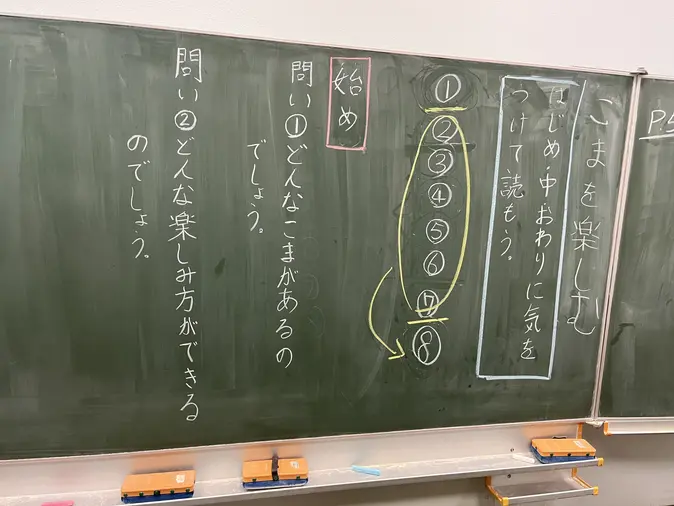 こまを楽しむ
はじめ・中・おわりに気を
つけて読もう。
①
②
③
④
⑤
⑥
⑦
⑧
始め
問い①どんなこまがあるの
でしょう。
問い②どんな楽しみ方ができる
のでしょう。